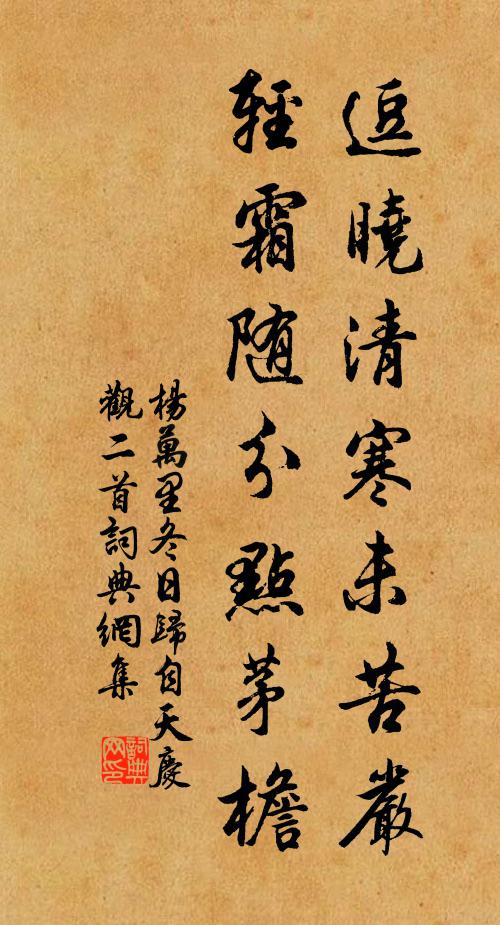 逗曉清寒未苦嚴
輕霜随分點茅檐
楊萬里冬日歸自天慶
觀二首詞典網集
詞典
网印